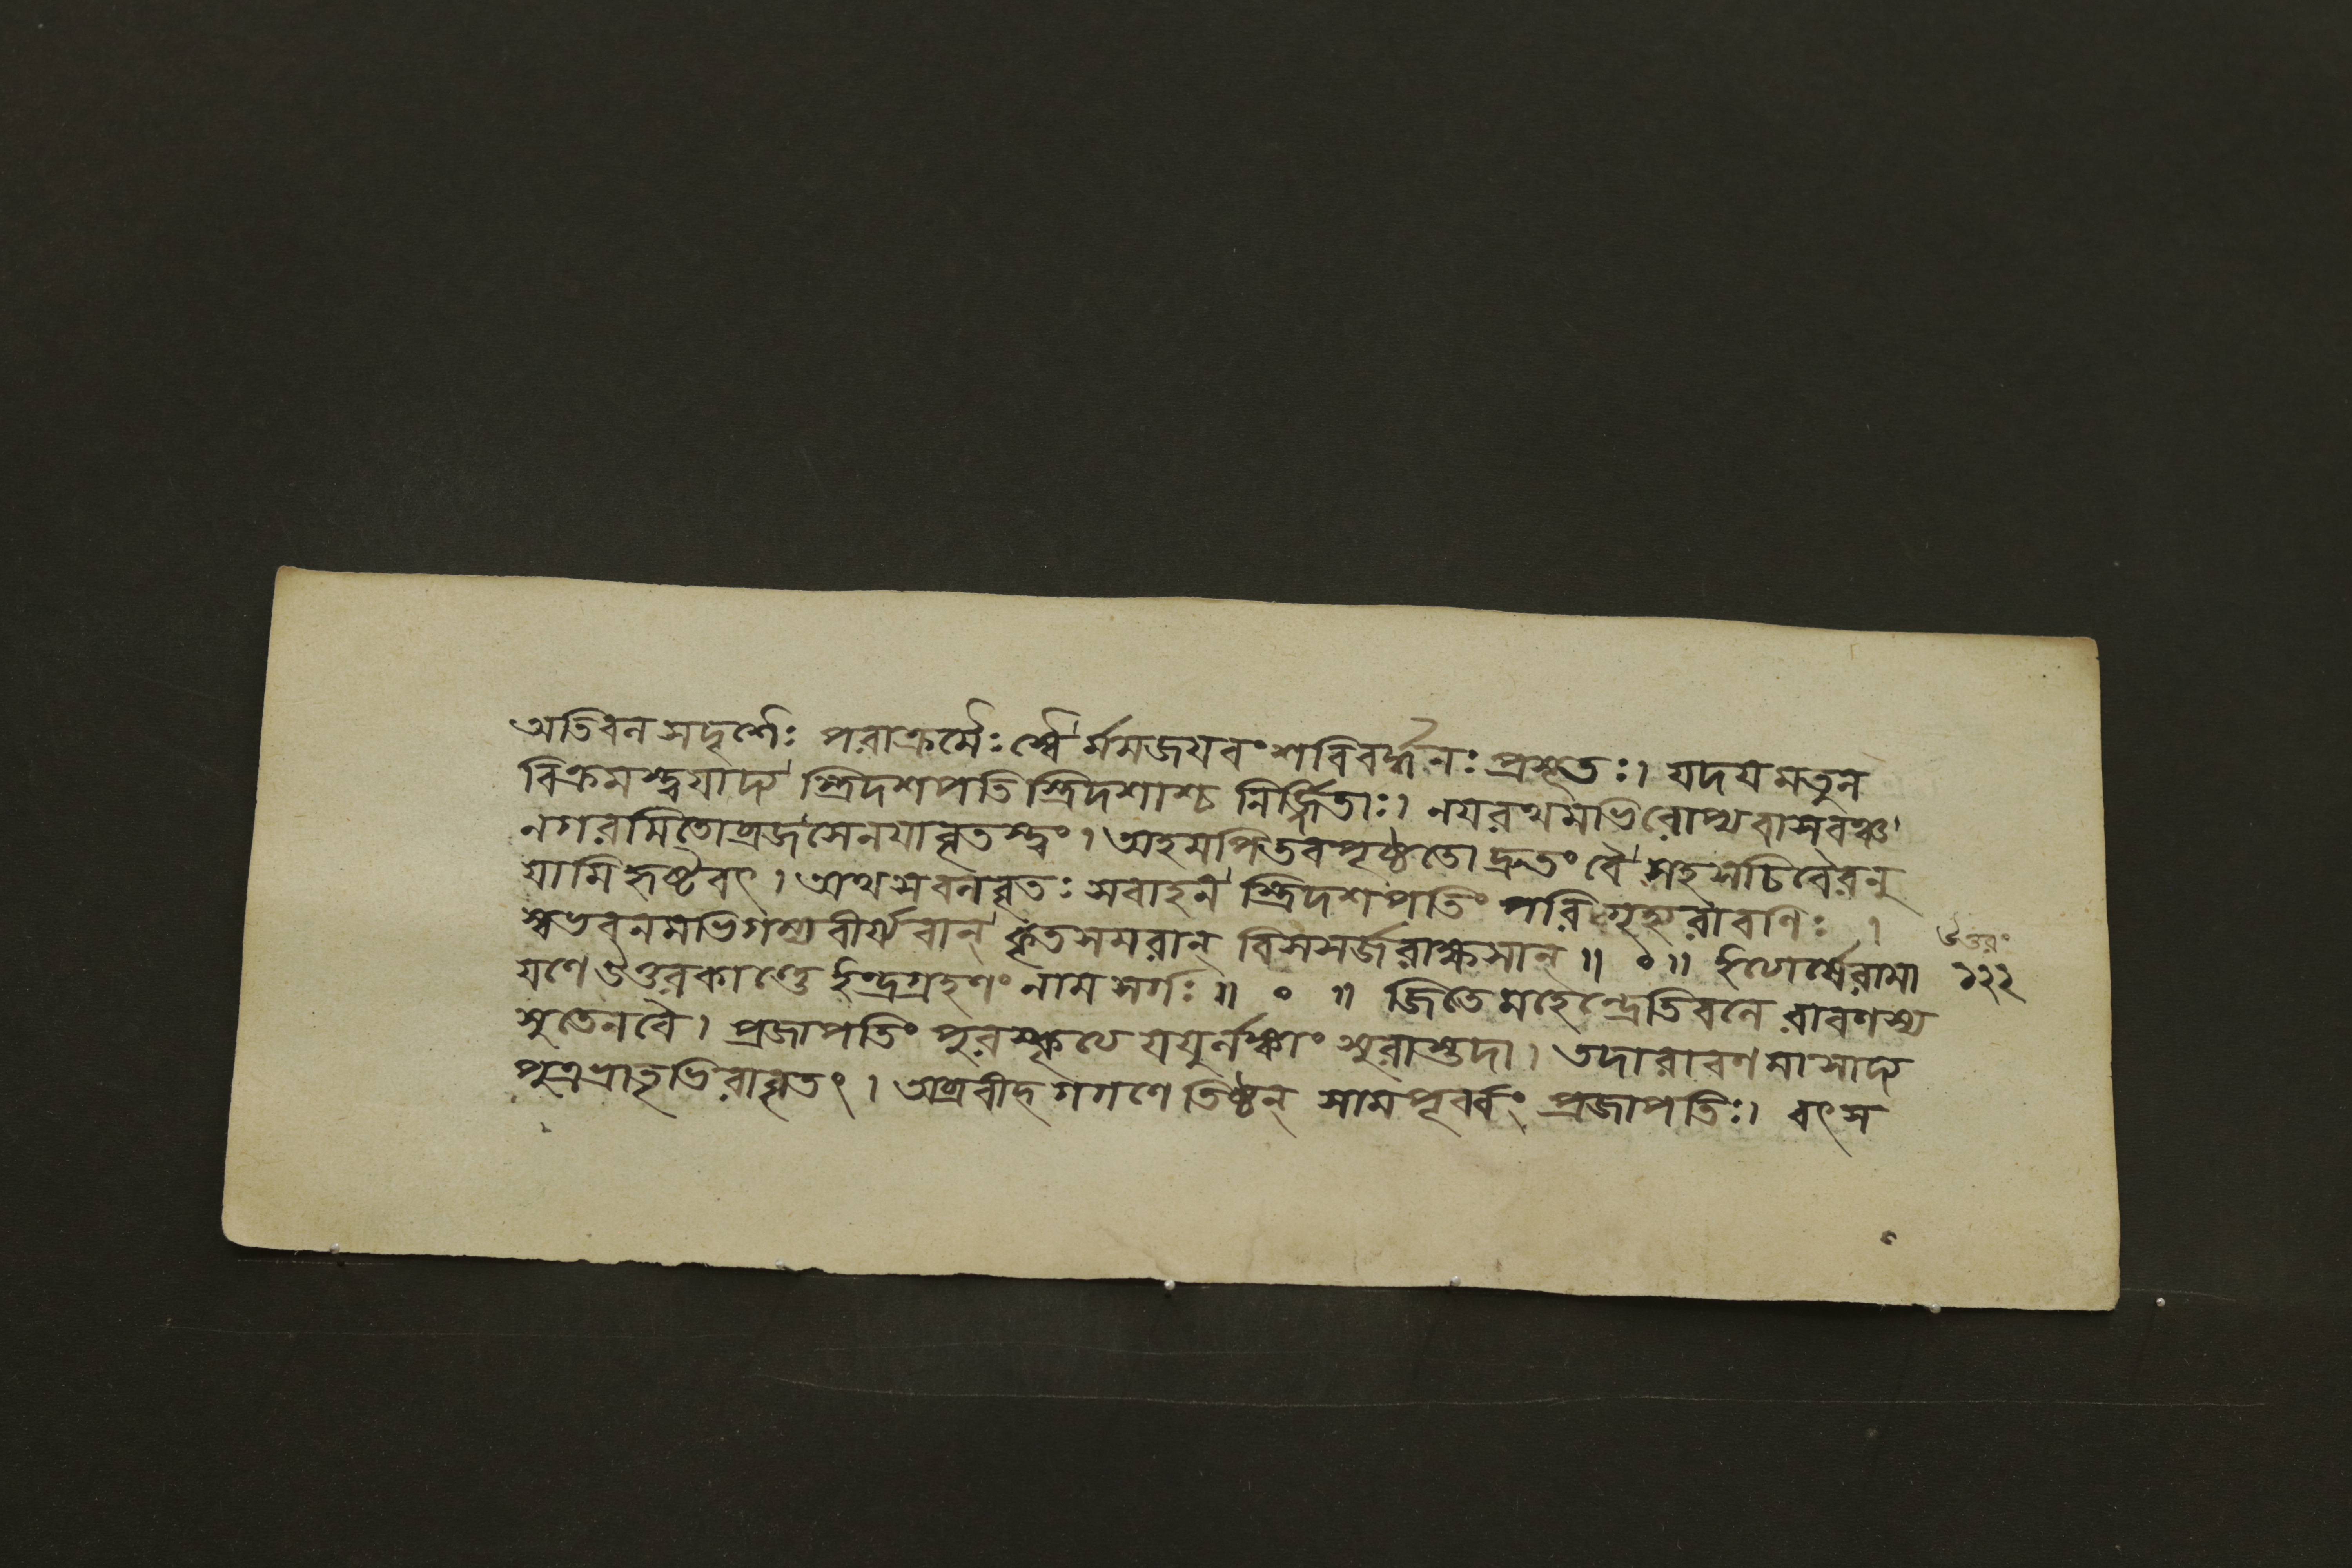 অতিবল সদৃশৈঃ পরাক্রমৈঃ স্বৈর্মমজয়বংশবিবর্দ্ধনঃ প্রসূতঃ। যদয়মতুল
বিক্রমস্ত্বয়াদ্য ত্রিদশপতি স্ত্রিদশাশ্চ নির্জ্জিতাঃ। নয়রথমভিরোপ্যবাসবঞ্চ
নগরমিতোব্রজসেনয়াবৃতস্ত্বং। অহমপিতবপৃষ্ঠতো দ্রুতং বৈ সহসচিবৈরনু
যামি হৃষ্টবৎ। অথসবলবৃতঃ সবাহন স্ত্রিদশপতিং পরিগৃহ্যরাবণিঃ।
স্বভবনমভিগম্যবীর্য্যবান্ কৃতসমরান্ বিসসর্জরাক্ষসান্॥ ০॥ ইত্যার্ষেরামা
য়ণে উত্তরকাণ্ডে ইন্দ্রগ্রহণং নাম সর্গঃ॥ ০ ॥ জিতেমহেন্দ্রেতিবলে রাবণস্য
সুতেনবৈ। প্রজাপতিং পুরস্কৃত্য যযুর্লঙ্কাং সুরাস্তদা। তদারাবণমাসাদ্য
পুত্রভ্রাতৃভিরাবৃতং। অব্রবীদ্ গগণেতিষ্ঠন্ সামপূর্ব্বং প্রজাপতিঃ। বৎস
উত্তরং
১২২